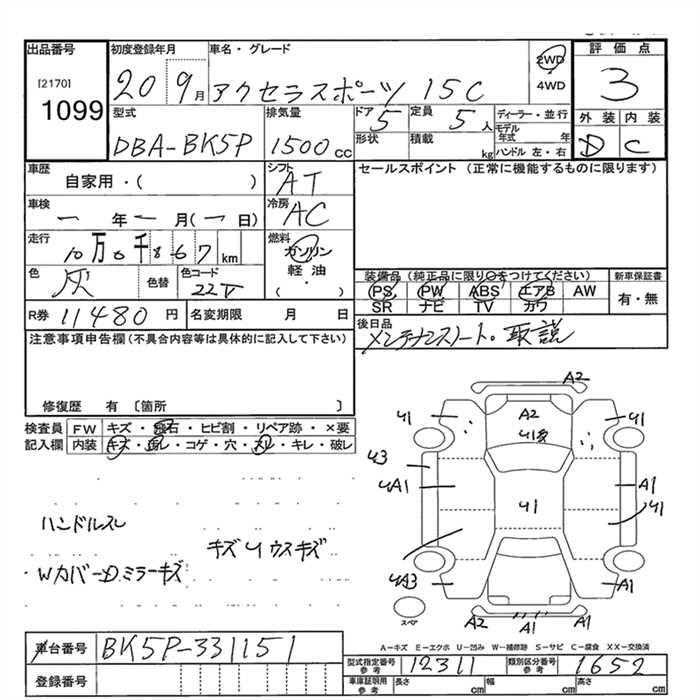 出品番号
[2170]
1099
初度登録年月
20 9月
車名・グレード
アクセラスポーツ 15C
2WD
・
4WD
評価点
3
外装 内装
D C
型式
DBA-BK5P
排気量
1500 cc
ドア
5
定員
5 人
形状
積載
kg
ディーラー・並行
モデル年式 年
ハンドル 左・右
車歴
自家用・( )
シフト
AT
車検
一 年 一 月(一 日)
冷房
AC
走行
10万0千867 km
燃料
ガソリン
軽油
・
( )
色
灰
色替
色コード
22V
R券 11480 円
名変期限 月 日
セールスポイント (正常に機能するものに限ります)
装備品(純正品に限り○をつけてください)
PS PW ABS エアB AW
SR ナビ TV カワ
新車保証書
有・無
後日品
メンテナンスノート・取説
注意事項申告欄(不具合内容等は具体的に記入して下さい)
修復歴 有 〔箇所 〕
検査員
記入欄
FW キズ・飛石・ヒビ割・リペア跡・×要
内装 キズ・汚レ・コゲ・穴・スレ・キレ・破レ
ハンドルスレ
キズUウスキズ
WカバーD.ミラーキズ
A2
A2
U1
U1
U3
UA1
U1
A1
U1
UA3
A1
A2
A1
スペア
A-キズ E-エクボ U-凹み W-補修跡 S-サビ C-腐食 XX-交換済
車台番号
BK5P-331151
登録番号
型式指定番号
参考
12311
類別区分番号
参考
1652
車庫証明用
参考
長さ cm
幅 cm
高さ cm